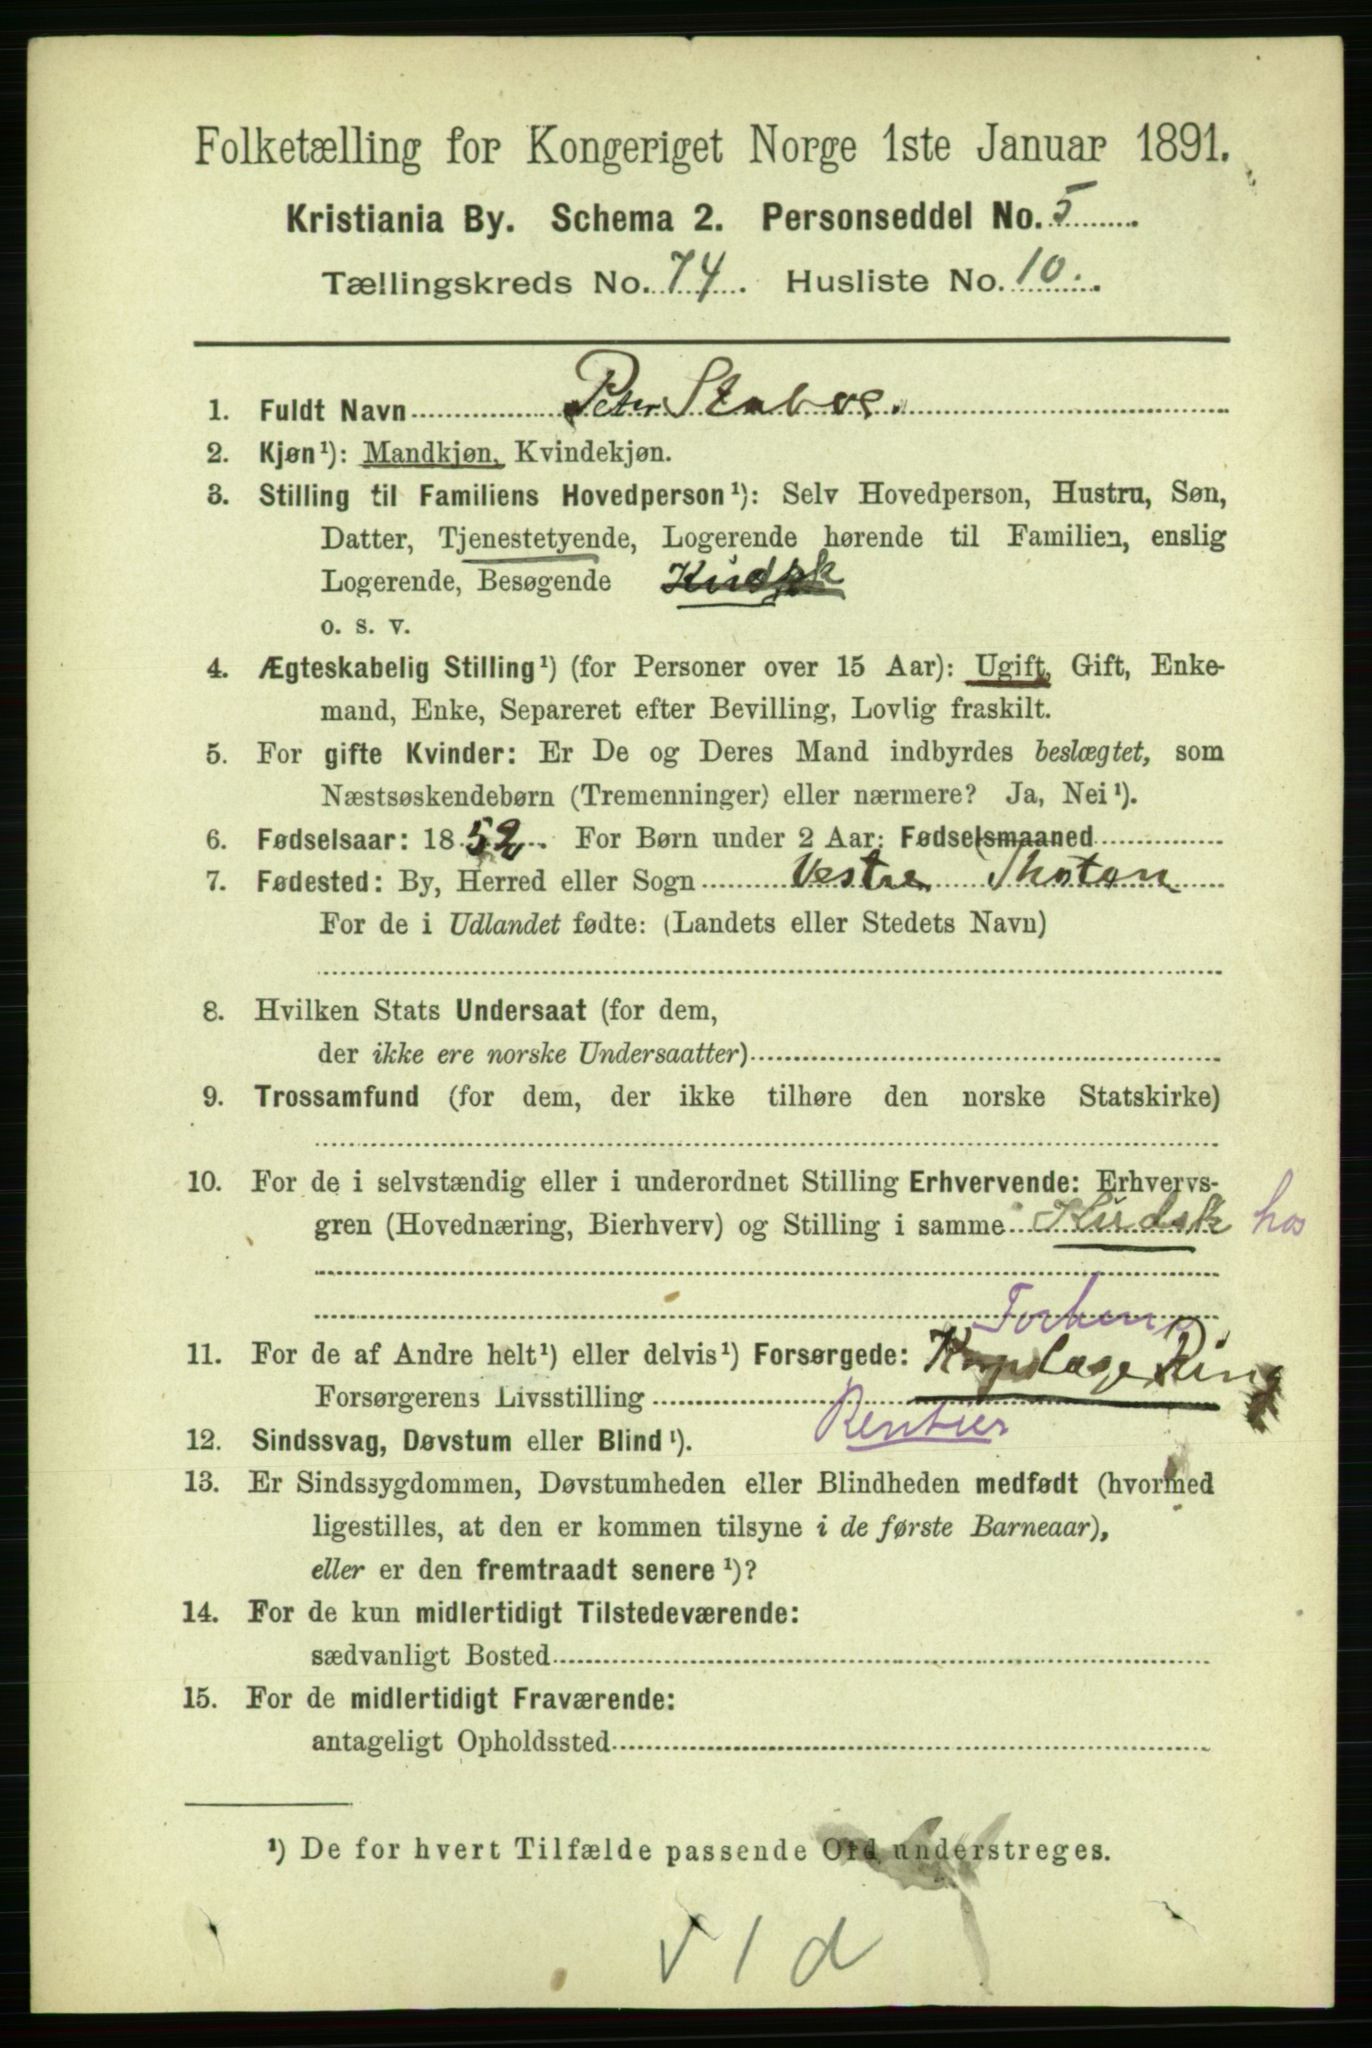 Folketælling for Kongeriget Norge 1ste Januar 1891.
Kristiania By. Schema 2. Personseddel No. 5
Tællingskreds No. 74. Husliste No. 10.
1. Fuldt Navn Peter Staboe.
2. Kjøn¹): Mandkjøn, Kvindekjøn.
3. Stilling til Familiens Hovedperson¹): Selv Hovedperson, Hustru, Søn,
Datter, Tjenestetyende, Logerende hørende til Familien, enslig
Logerende, Besøgende Kudsk
o. s. v.
4. Ægteskabelig Stilling¹) (for Personer over 15 Aar): Ugift, Gift, Enke-
mand, Enke, Separeret efter Bevilling, Lovlig fraskilt.
5. For gifte Kvinder: Er De og Deres Mand indbyrdes beslægtet, som
Næstsøskendebørn (Tremenninger) eller nærmere? Ja, Nei¹).
6. Fødselsaar: 1852. For Børn under 2 Aar: Fødselsmaaned
7. Fødested: By, Herred eller Sogn Vestre Thoten
For de i Udlandet fødte: (Landets eller Stedets Navn)
8. Hvilken Stats Undersaat (for dem,
der ikke ere norske Undersaatter)
9. Trossamfund (for dem, der ikke tilhøre den norske Statskirke)
10. For de i selvstændig eller i underordnet Stilling Erhvervende: Erhvervs-
gren (Hovednæring, Bierhverv) og Stilling i samme Kudsk hos
11. For de af Andre helt¹) eller delvis¹) Forsørgede: Ring
Forsørgerens Livsstilling
Rentier
12. Sindssvag, Døvstum eller Blind¹).
13. Er Sindssygdommen, Døvstumheden eller Blindheden medfødt (hvormed
ligestilles, at den er kommen tilsyne i de første Barneaar),
eller er den fremtraadt senere¹)?
14. For de kun midlertidigt Tilstedeværende:
sædvanligt Bosted
15. For de midlertidigt Fraværende:
antageligt Opholdssted
¹) De for hvert Tilfælde passende Ord understreges.
v 1 d